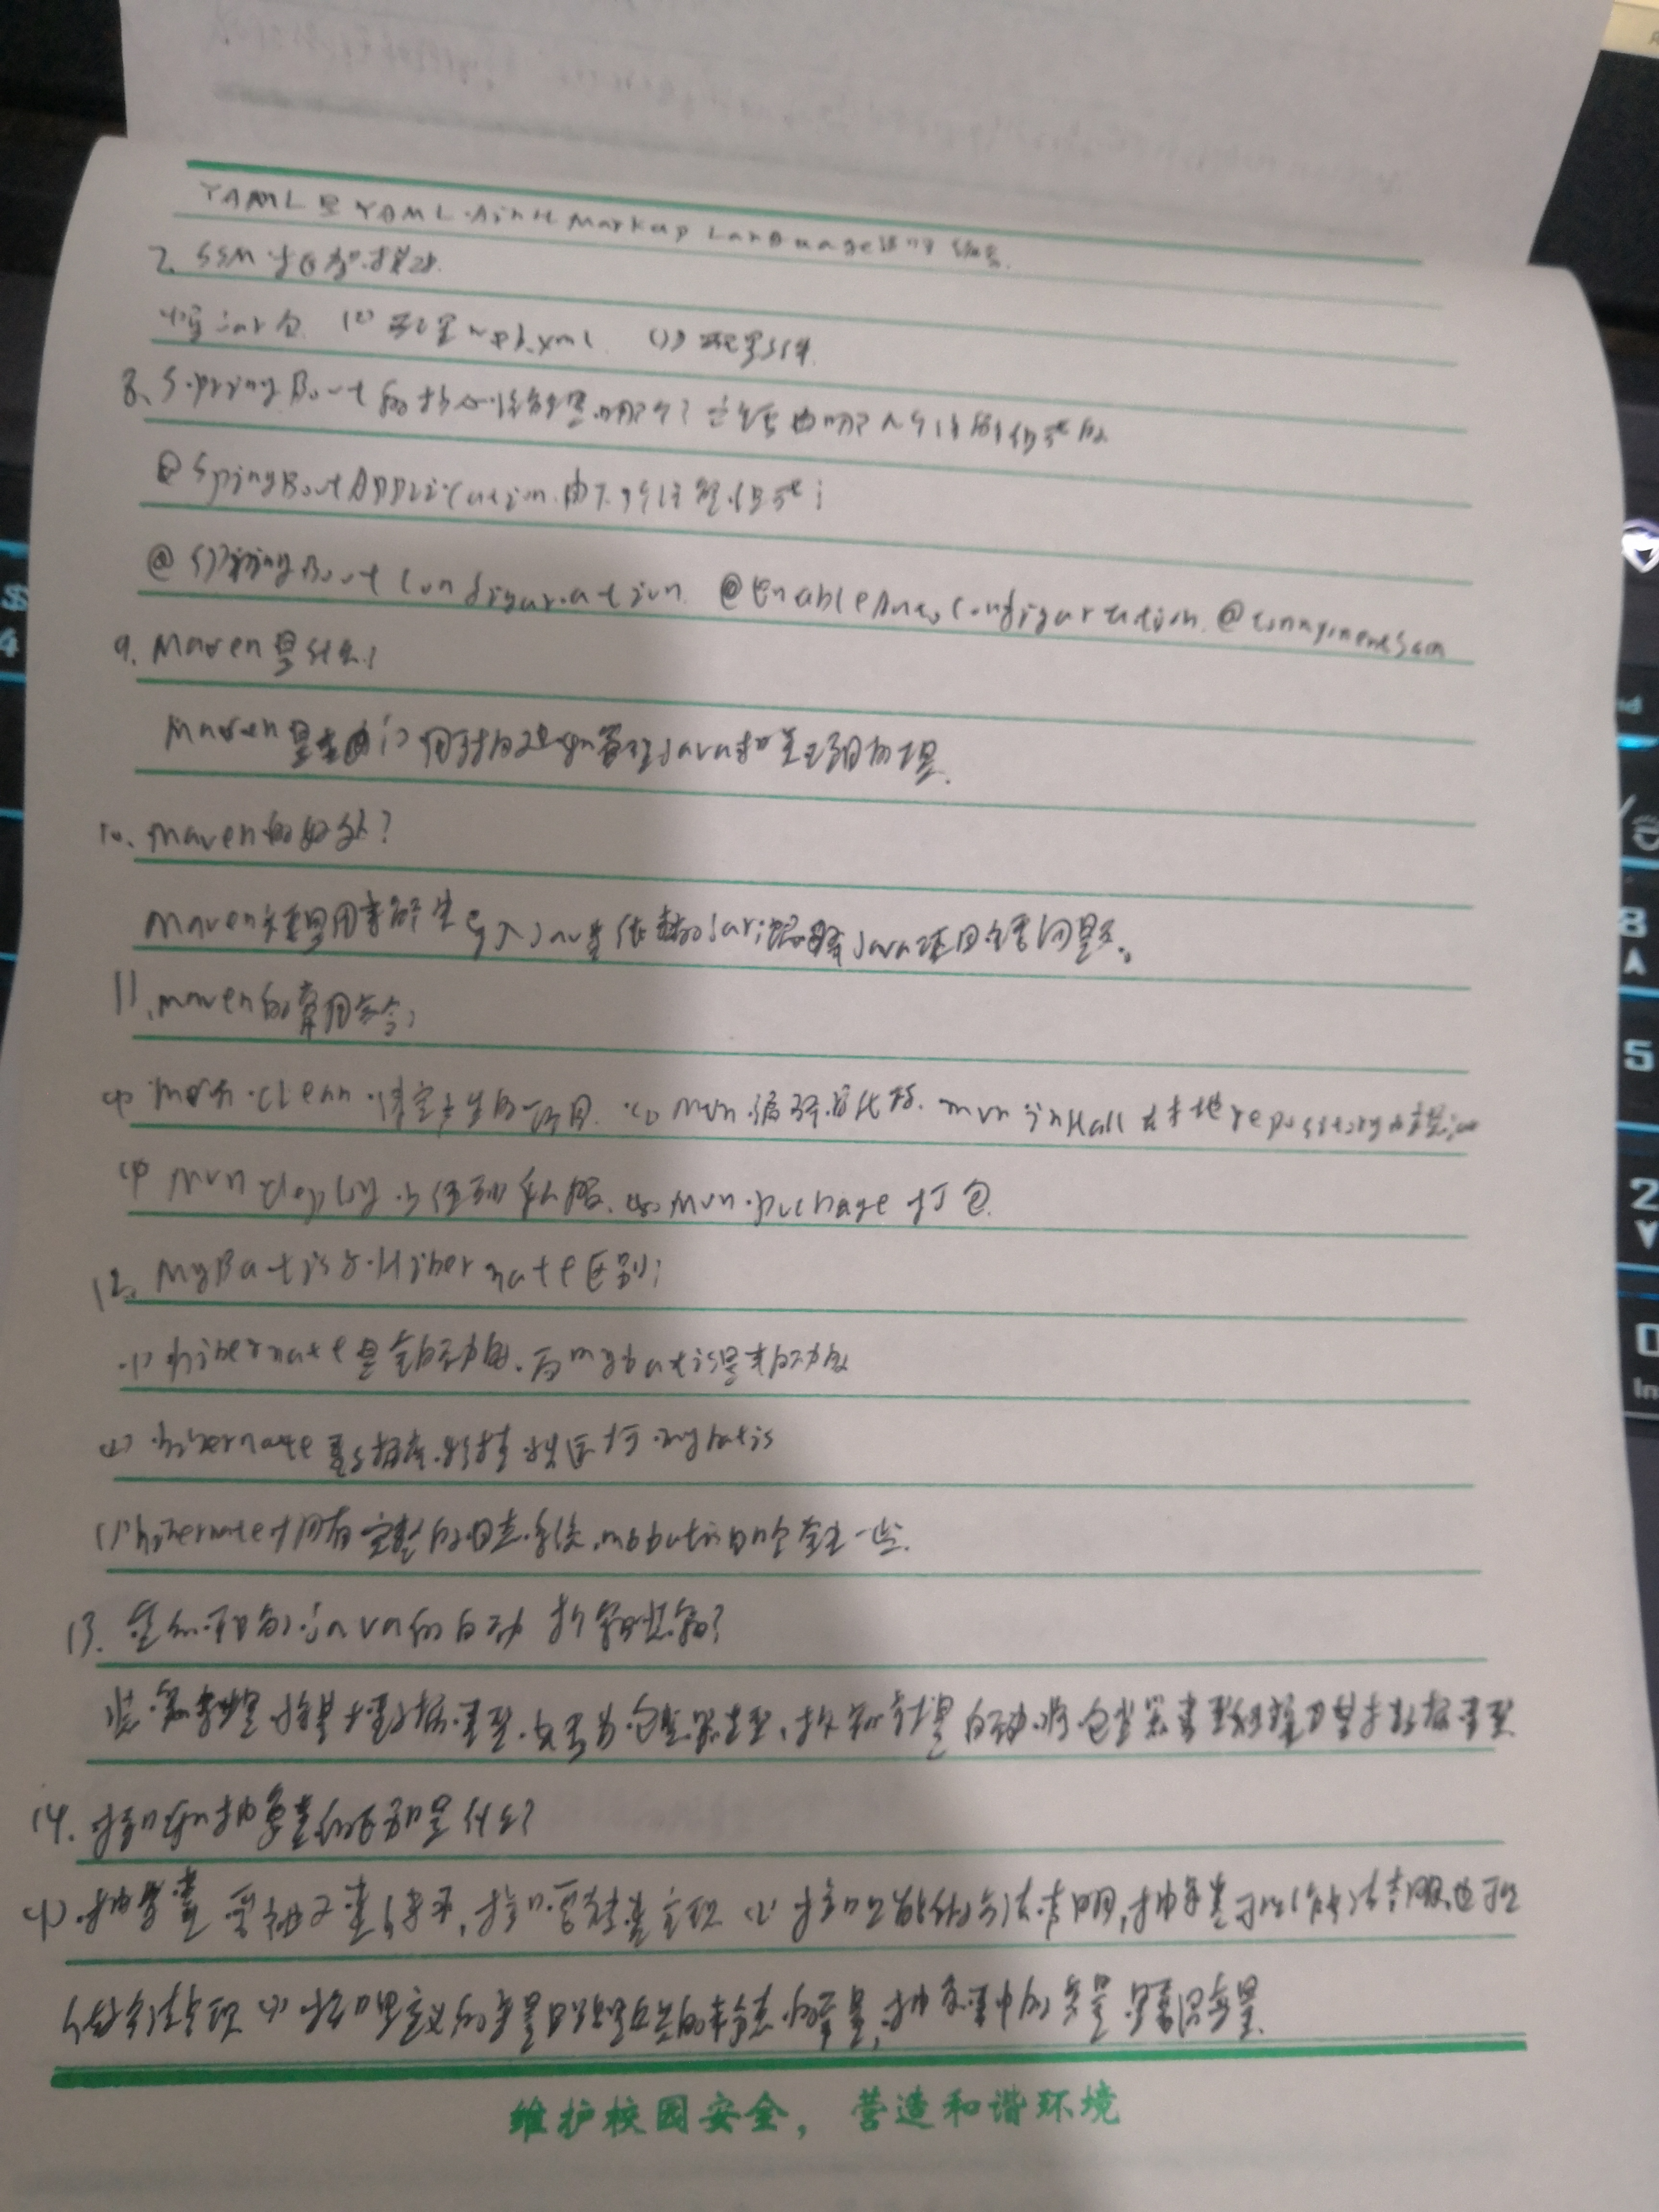 YAML是YAML Ain't Markup Language
7. SSM
(1) jar包 (2) 配置web.xml (3) 配置文件
8. Spring Boot的核心注解是哪个? 主要由哪几个注解组成的
@SpingBootApplication 由下列注解组成:
@SpringBootConfiguration @EnableAutoConfiguration @ComponentScan
9. Maven是什么?
Maven是 用于构建和管理Java相关项目的工具.
10. Maven的好处?
Maven主要是用来解决导入Java类依赖的jar Java项目 问题。
11. maven的常用命令:
(1) mvn clean 清空产生的项目 (2) mvn 编译源代码 mvn install 在本地repository中安装jar
(4) mvn deploy 上传到私服 (5) mvn package 打包
12. MyBatis与Hibernate区别:
(1) hibernate是全自动的,而mybatis是半自动的
(2) hibernate数据库移植性远大于mybatis
(3) hibernate拥有完整的日志系统, mybatis 一些.
13. 如何 java的自动 拆箱装箱?
装箱就是将基本数据类型 为包装器类型,拆箱就是自动将包装器类型转换为基本数据类型
14. 接口和抽象类的区别是什么?
(1) 抽象类要被子类继承,接口要被类实现 (2) 接口只能做方法声明,抽象类可以做方法声明,也可以
做方法实现 (3) 接口里定义的变量只能是公共的静态的常量,抽象类中的变量是普通变量.
维护校园安全，营造和谐环境